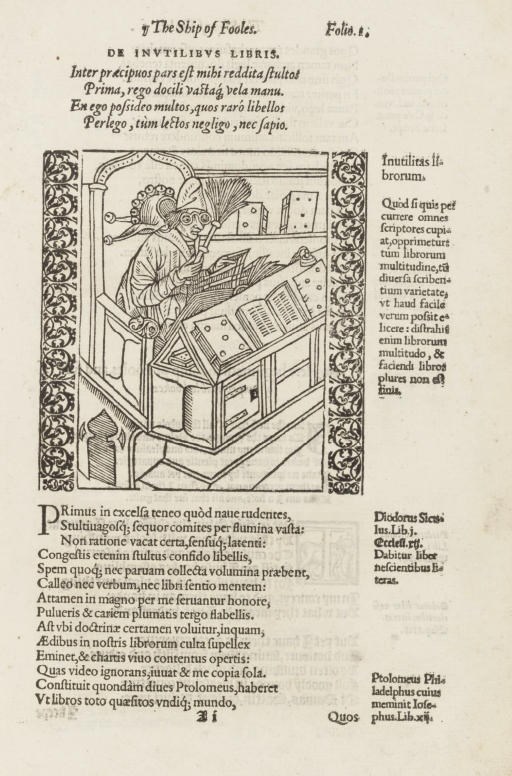 ¶ The Ship of Fooles.
Folio. 1.
DE INVTILIBVS LIBRIS.
Inter præcipuos pars est mihi reddita stultos
Prima, rego docili vastaq́; vela manu.
En ego possideo multos, quos raró libellos
Perlego, tùm lectos negligo, nec sapio.
Inutilitas li-
brorum.
Quòd si quis per
currere omnes
scriptores cupi-
at, opprimeturs
tum librorum
multitudine, tū
diuersa scriben-
tium varietate,
vt haud facilè
verum possit e-
licere: distrahit
enim librorum
multitudo, &
faciendi libros
plures non est
finis.
PRimus in excelsa teneo quòd naue rudentes,
Stultiuagosq́; sequor comites per flumina vasta:
Non ratione vacat certa, sensuq́; latenti:
Congestis etenim stultus confido libellis,
Spem quoq́; nec paruam collecta volumina præbent,
Calleo nec verbum, nec libri sentio mentem:
Attamen in magno per me seruantur honore,
Pulueris & cariem plumatis tergo flabellis.
Ast vbi doctrinæ certamen voluitur, inquam,
Ædibus in nostris librorum culta supellex
Eminet, & chartis viuo contentus opertis:
Quas video ignorans, iuuat & me copia sola.
Constituit quondàm diues Ptolomeus, haberet
Vt libros toto quæsitos vndiq́; mundo,
Diodorus Sicu-
lus. Lib. j.
Eccless. xij.
Dabitur liber
nescientibus li-
teras.
Ptolomeus Phi-
ladelphus cuius
meminit Iose-
phus. Lib. xij.
A i
Quos